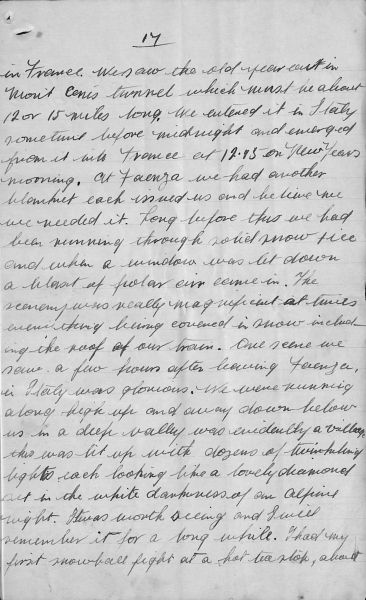 17
in France. We saw the old year out in
Mont Cenis tunnel which must be about
12 or 15 miles long. We entered it in Italy
sometime before midnight and emerged
from it into France at 12.15 on New Years
morning. At Faenza we had another
blanket each issued us and believe me
we needed it. Long before this we had
been running through solid snow & ice
and when a window was let down
a blast of polar air came in. The
scenery was really magnificent at times
everything being covered in snow includ-
ing the roof of our train. One scene we
saw a few hours after leaving Faenza,
in Italy was glorious. We were running
along high up and away down below
us in a deep valley was evidently a village,
this was lit up with dozens of twinkling
lights each looking like a lovely diamond
set in the white darkness of an alpine
night. It was worth seeing and I will
remember it for a long while. I had my
first snowball fight at a hot tea stop, about